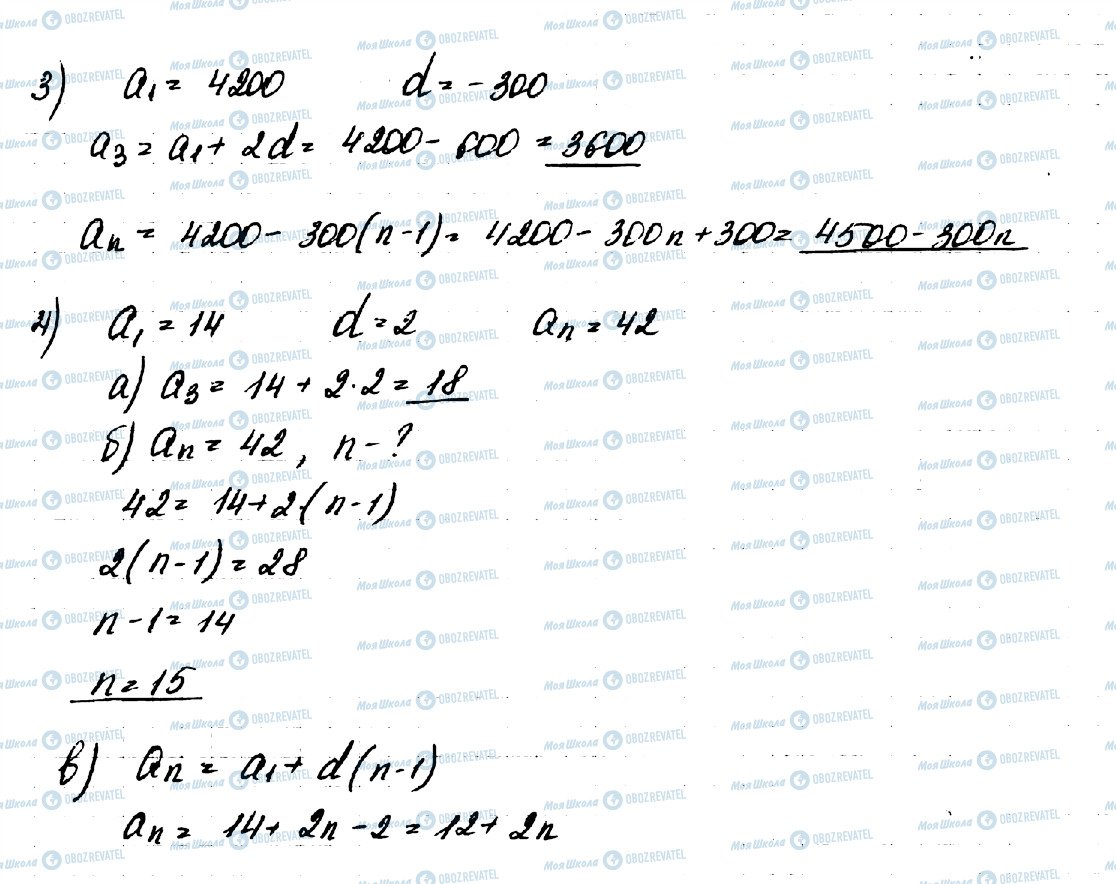 3) a₁ = 4200 d = -300
a₃ = a₁ + 2d = 4200 - 600 = 3600
aₙ = 4200 - 300(n-1) = 4200 - 300n + 300 = 4500 - 300n
4) a₁ = 14 d = 2 aₙ = 42
а) a₃ = 14 + 2·2 = 18
б) aₙ = 42, n - ?
42 = 14 + 2·(n-1)
2(n-1) = 28
n - 1 = 14
n = 15
в) aₙ = a₁ + d(n-1)
aₙ = 14 + 2n - 2 = 12 + 2n
Моя Школа OBOZREVATEL